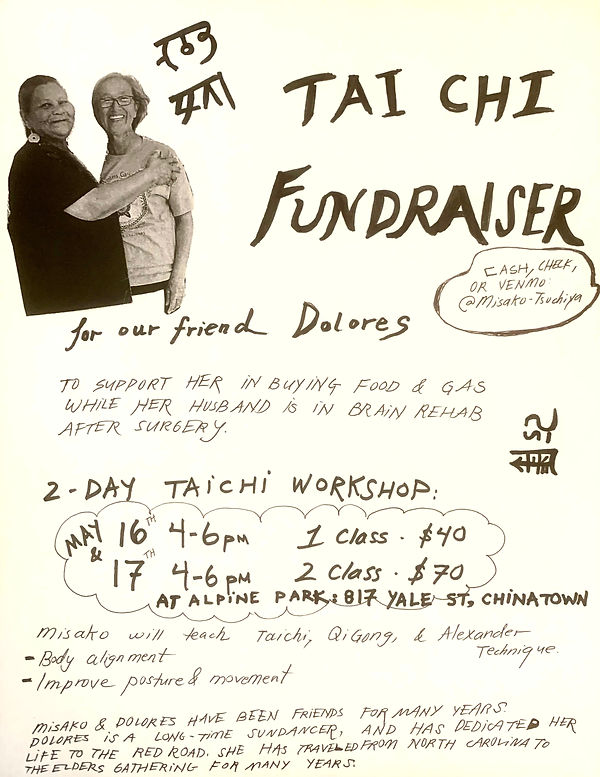 TAI CHI
FUNDRAISER
CASH, CHECK,
OR VENMO:
@Misako-Tsuchiya
for our friend Dolores
TO SUPPORT HER IN BUYING FOOD & GAS
WHILE HER HUSBAND IS IN BRAIN REHAB
AFTER SURGERY.
2-DAY TAICHI WORKSHOP:
MAY 16TH 4-6PM 1 Class · $40
& 17TH 4-6 PM 2 Class · $70
AT ALPINE PARK: 817 YALE ST, CHINATOWN
Misako will teach Taichi, QiGong, & Alexander
Technique.
- Body alignment
- Improve posture & movement
MISAKO & DOLORES HAVE BEEN FRIENDS FOR MANY YEARS.
DOLORES IS A LONG-TIME SUNDANCER, AND HAS DEDICATED HER
LIFE TO THE RED ROAD. SHE HAS TRAVELED FROM NORTH CAROLINA TO
THE ELDERS GATHERING FOR MANY YEARS.